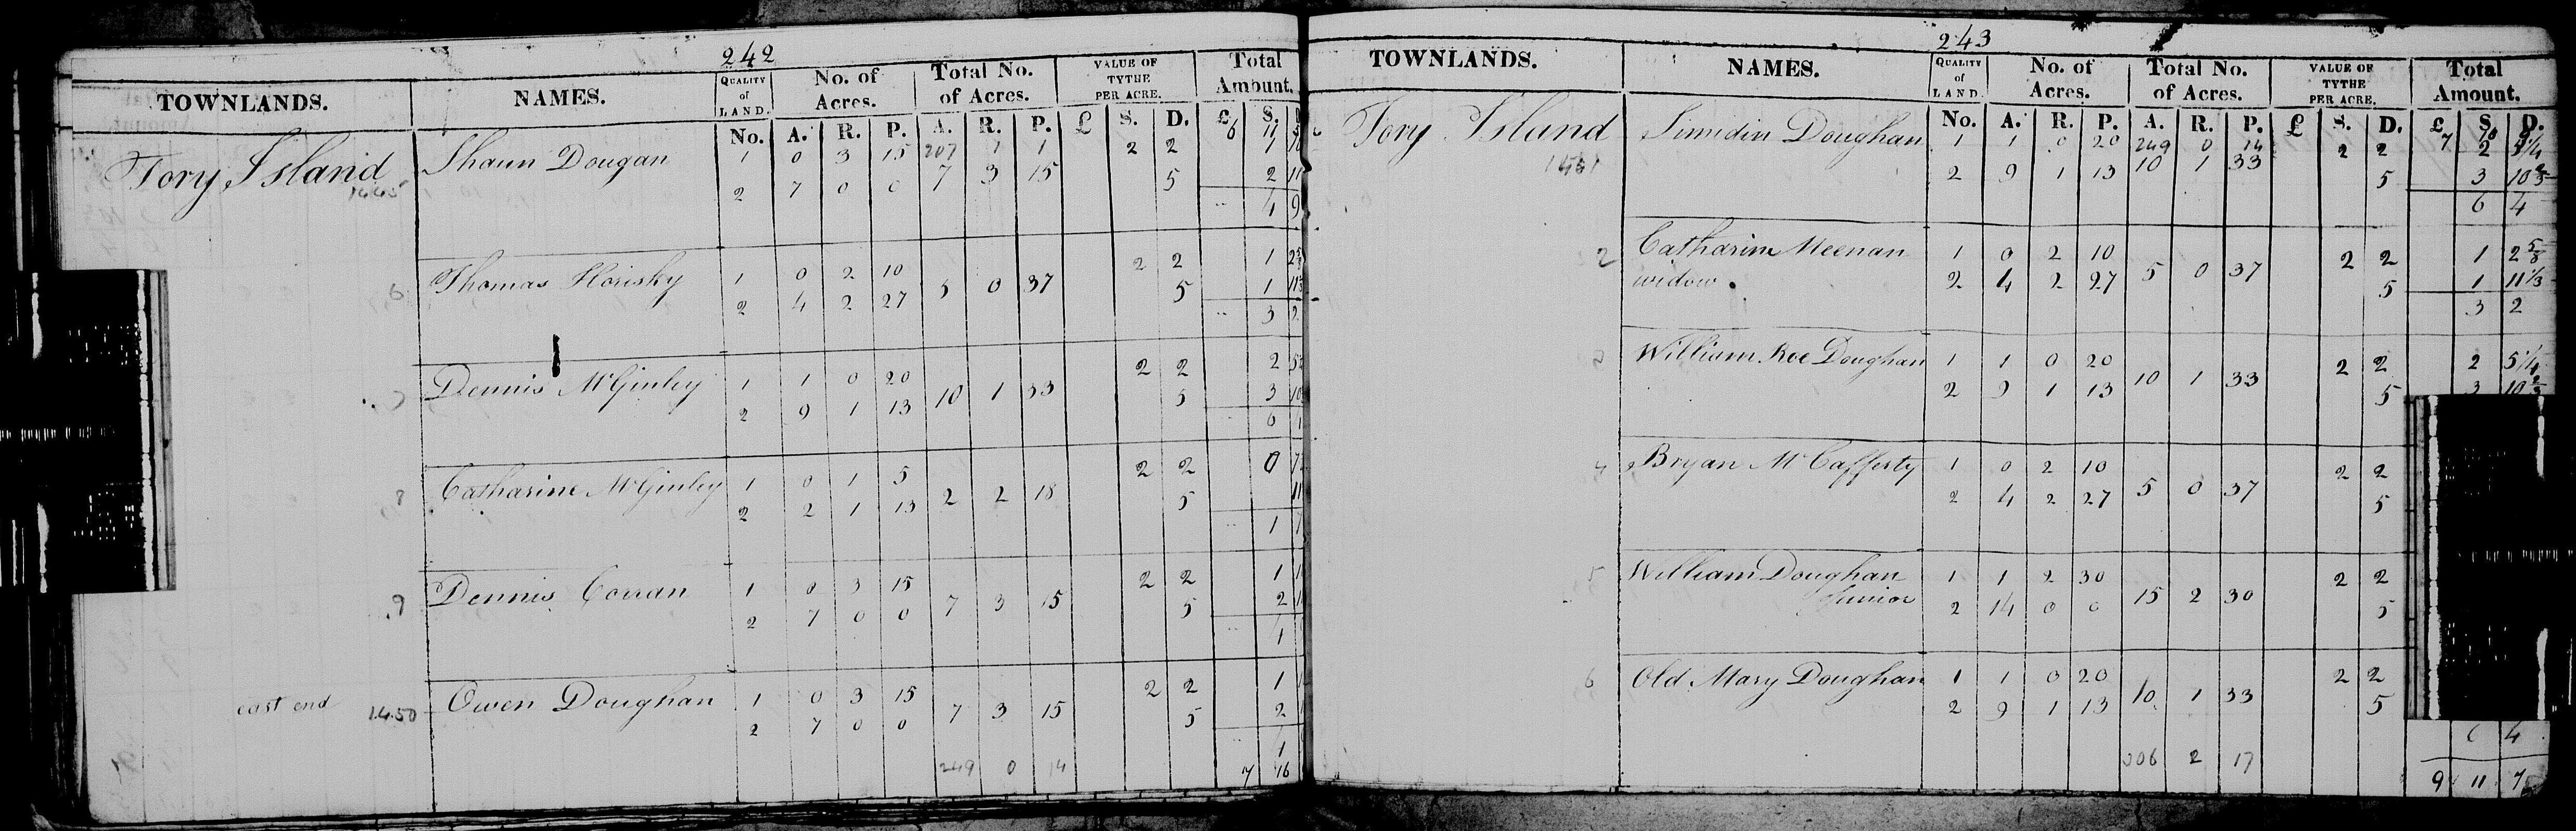 242
TOWNLANDS. NAMES. QUALITY of LAND. No. of Acres. Total No. of Acres. VALUE OF TYTHE PER ACRE. Total Amount.
No. A. R. P. A. R. P. £ S. D. £ S.
207 1 1 6 11
Tory Island Shaun Dougan 1 0 3 15 2 2 1
1445 2 7 0 0 7 3 15 5 2
4 9
6 Thomas Horisky 1 0 2 10 2 2 1
2 4 2 27 5 0 37 5 1
3 2
Dennis McGinley 1 1 0 20 2 2 2
2 9 1 13 10 1 33 5 3
6
8 Catharine McGinley 1 0 1 5 2 2 0
2 2 1 13 2 2 18 5
1
9 Dennis Corran 1 0 3 15 2 2 1
2 7 0 0 7 3 15 5 2
east end 1450 Owen Doughan 1 0 3 15 2 2 1
2 7 0 0 7 3 15 5 2
249 0 14 7 16
243
TOWNLANDS. NAMES. QUALITY of LAND. No. of Acres. Total No. of Acres. VALUE OF TYTHE PER ACRE. Total Amount.
No. A. R. P. A. R. P. £ S. D. £ S. D.
249 0 14 7 16
Tory Island Simidin Doughan 1 1 0 20 2 2 2 5 1/4
1451 2 9 1 13 10 1 33 5 3 10 2/3
6 4
2 Catharine Meenan 1 0 2 10 2 2 1 2 5/8
widow. 2 4 2 27 5 0 37 5 1 11 1/3
3 2
3 William Roe Doughan 1 1 0 20 2 2 2 5 1/4
2 9 1 13 10 1 33 5 3 10 2/3
4 Bryan McCafferty 1 0 2 10 2 2
2 4 2 27 5 0 37 5
5 William Doughan 1 1 2 30 2 2
Junior 2 14 0 0 15 2 30 5
6 Old Mary Doughan 1 1 0 20 2 2
2 9 1 13 10 1 33 5
6 4
306 2 17 9 11 7